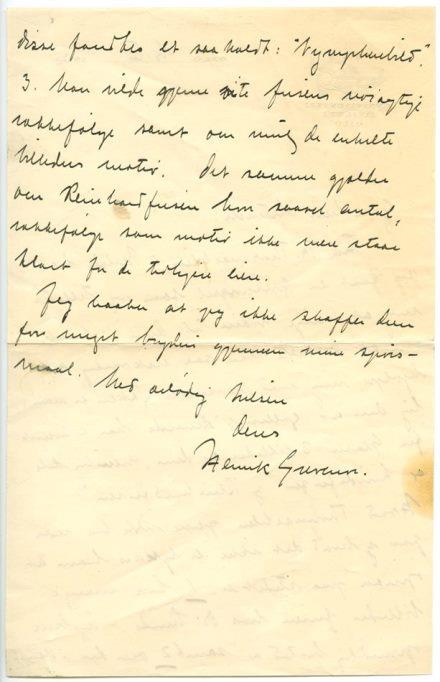 disse fandtes et saakaldt: "Nymphenbild".
3. Man vilde gjerne vite frisens nöiagtige
rækkefölge samt om mulig de enkelte
billeders motiv. Det samme gjælder
om Reinhardtfrisen hvor saavel antal,
rækkefölge som motiv ikke mere staar
klart for de tidligere eiere.
Jeg haaber at jeg ikke skaffer Dem
for meget bryderi gjennem mine spörs-
maal. Med ærbödig hilsen
Deres
Henrik Grevenor.